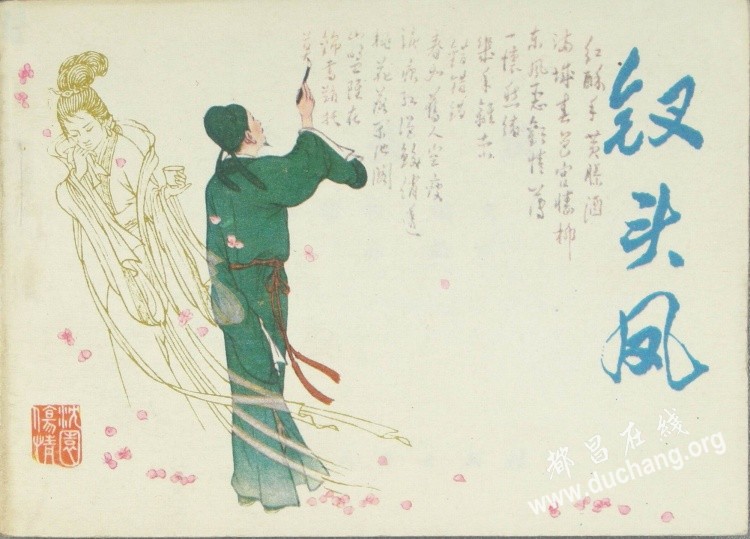 钗头凤
红酥手黄縢酒
满城春色宫墙柳
东风恶欢情薄
一怀愁绪
几年离索
错错错
春如旧人空瘦
泪痕红浥鲛绡透
桃花落闲池阁
山盟虽在
锦书难托
莫
沈園
傷情
都昌在线
www.duchang.org